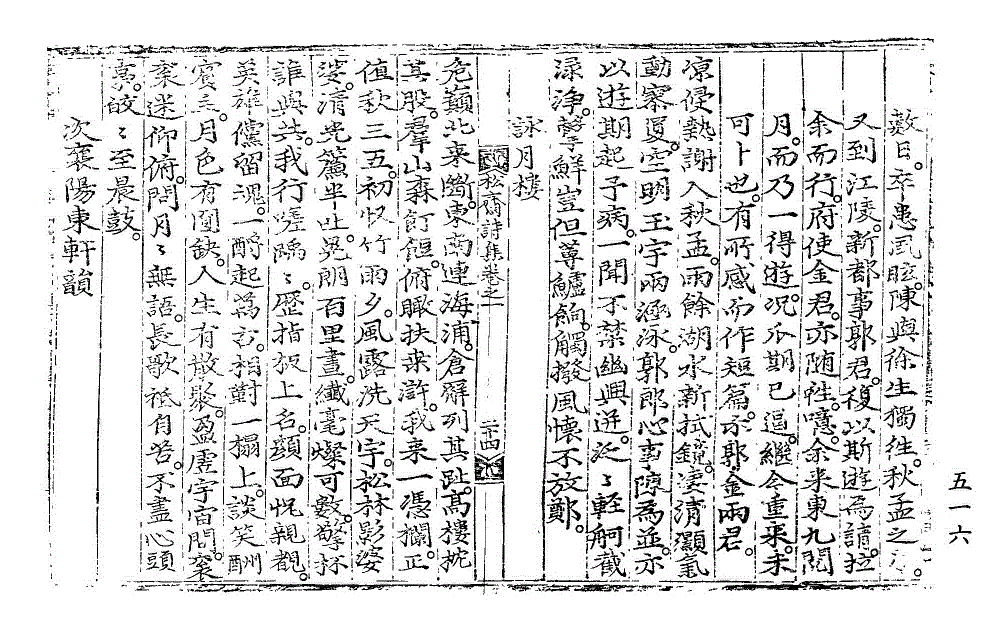 數日。卒患風眩。陳與徐生獨往。秋孟之
又到江陵。新都事郭君。復以斯遊爲請。拉
余而行。府使金君。亦随往。噫。余來東九閱
月。而乃一得遊。况瓜期已逼。繼今重來。未
可卜也。有所感而作短篇。示郭金兩君。
凉侵熱謝入秋孟。雨餘湖水新拭鏡。凄清灝氣
動寥敻。空明玉宇兩涵泳。郭郎心事陳爲並。亦
以遊期起予病。一聞不禁幽興迸。泛〻軽舸截
渌净。擊鮮豈但蓴鱸餉。觸撥風懷不放鄭。
詠月樓
松齋詩集卷之一
二十四
危巓北來斷。東南連海浦。倉廨列其趾。高樓挩
其股。羣山森飣餖。俯瞰扶桒滸。我來一憑欄。正
值秋三五。初收竹雨夕。風露洗天宇。松林影婆
娑。清光簷半吐。晃朗百里畫。纎毫燦可數。擎杯
誰與共。我行嗟踽〻。歴指板上名。顔面怳親覩。
英雄儻留魂。一酹起爲舞。相對一榻上。談笑酬
賓主。月色有圓缺。人生有散聚。盈虛宇宙間。袞
袞迷仰俯。問月〻無語。長歌祗自苦。不盡心頭
事。皎〻至晨鼓。
次襄陽東軒韻
五一六